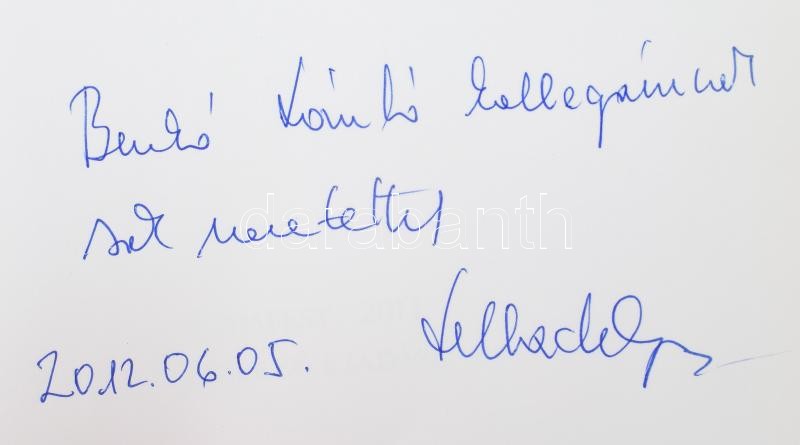 Benkó Sándor kollegámnak
sok szeretettel
2012.06.05.
darabanth